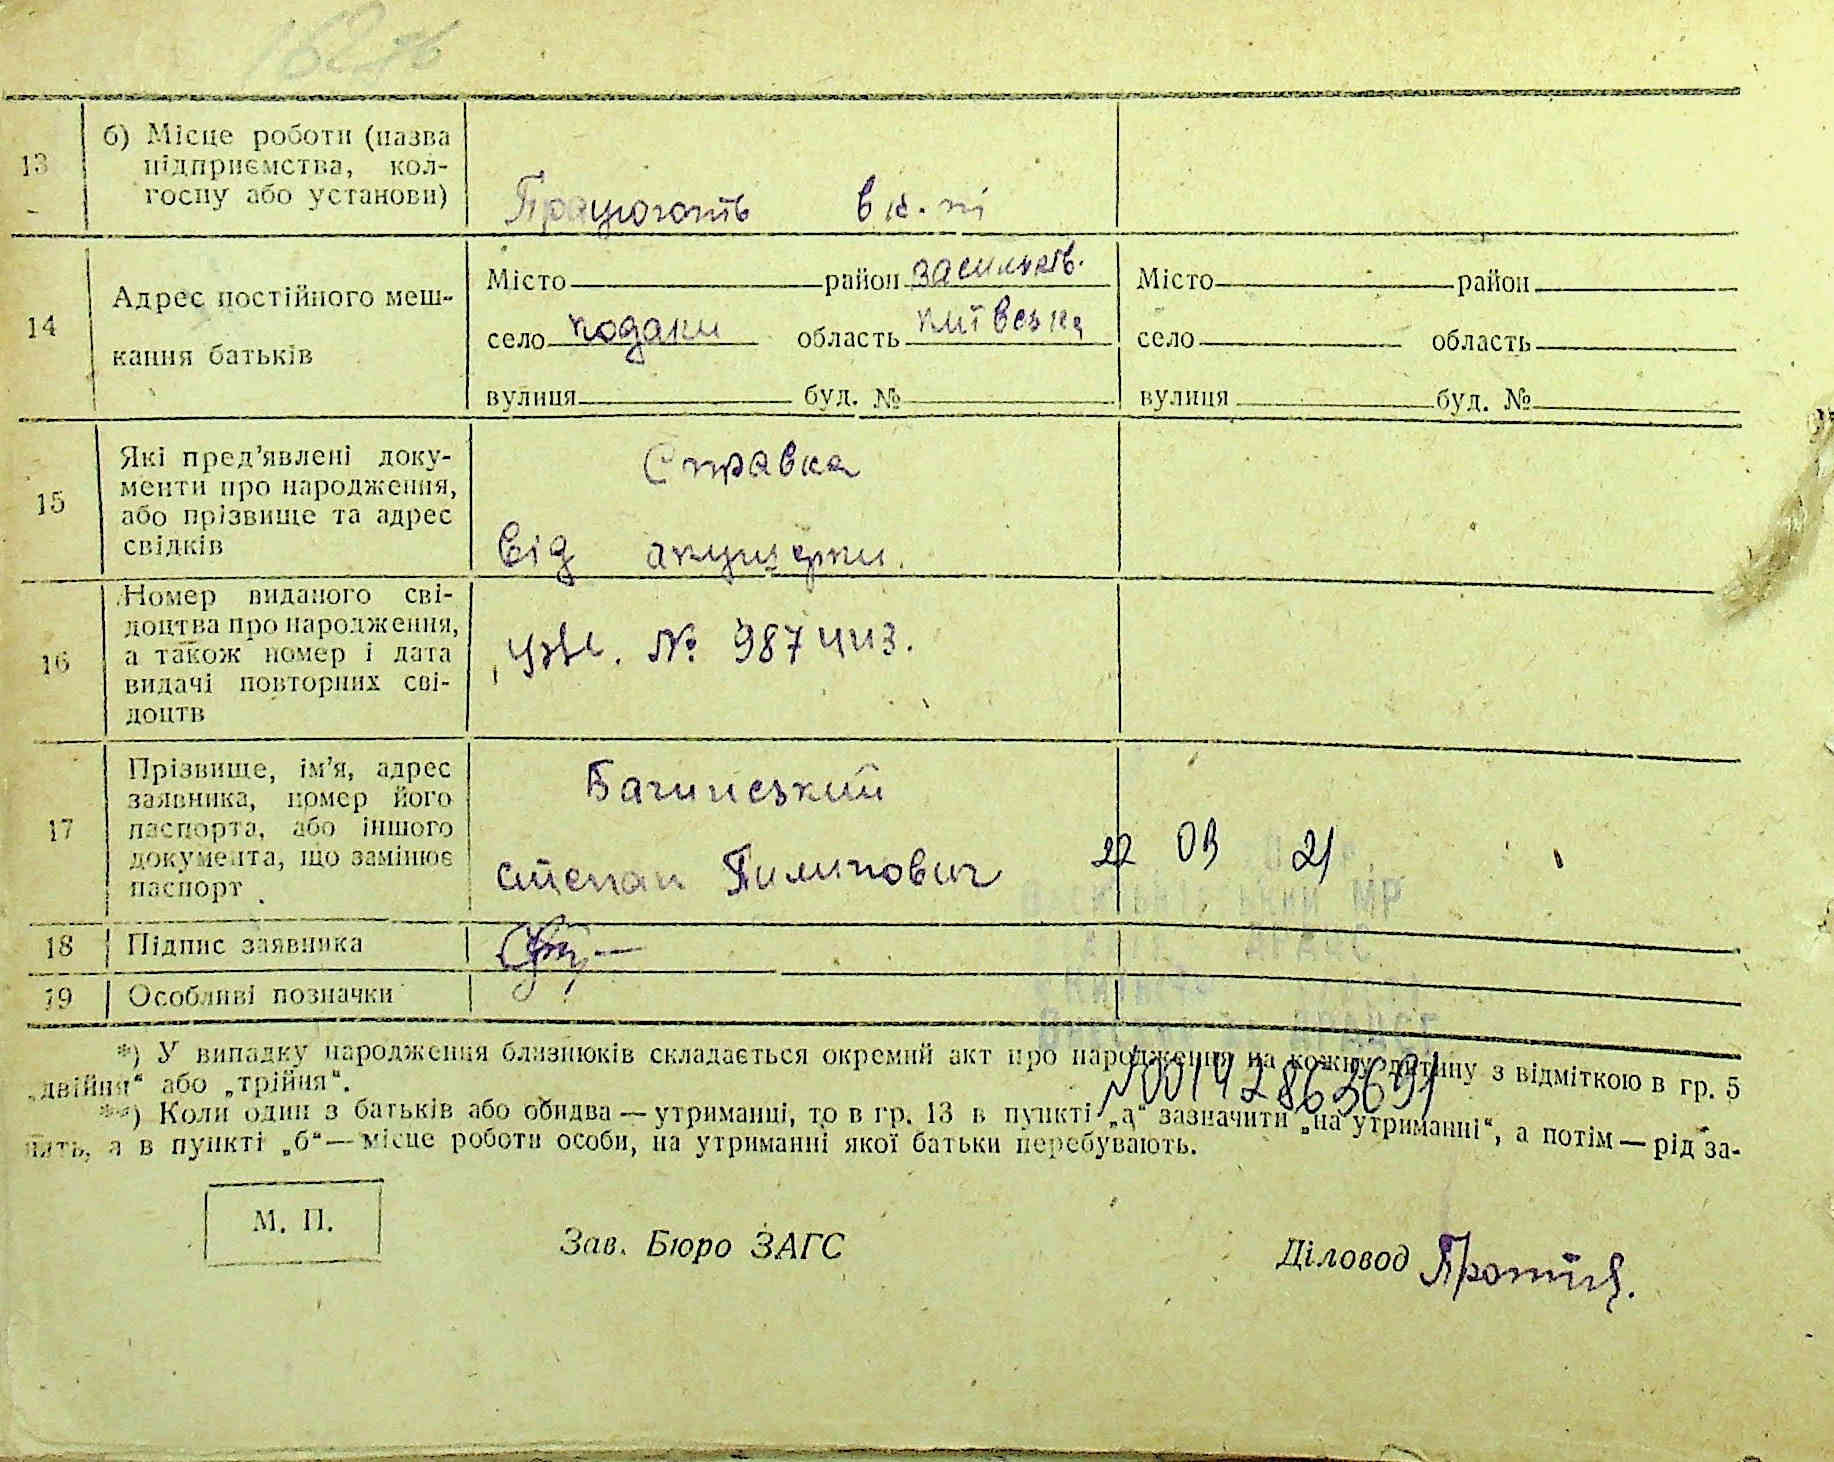 13
б) Місце роботи (назва
підприємства, кол-
госпу або установи)
Працюють в к. ті
14
Адрес постійного меш-
кання батьків
Місто район Васильків.
село Кодаки область Київська
вулиця буд. №
Місто район
село область
вулиця буд. №
15
Які пред’явлені доку-
менти про народження,
або прізвище та адрес
свідків
Справка
від акушерки.
16
Номер виданого сві-
доцтва про народження,
а також номер і дата
видачі повторних сві-
доцтв
№ 987
17
Прізвище, ім’я, адрес
заявника, номер його
паспорта, або іншого
документа, що замінює
паспорт
Багинський
Степан Пилипович
22 03 21
МР
18
Підпис заявника
19
Особливі позначки
*) У випадку народження близнюків складається окремий акт про народження на кожну дитину з відміткою в гр. 5
„двійня“ або „трійня“.
№00142863691
**) Коли один з батьків або обидва — утриманці, то в гр. 13 в пункті „а“ зазначити „на утриманні“, а потім — рід за-
нять, а в пункті „б“ — місце роботи особи, на утриманні якої батьки перебувають.
М. П.
Зав. Бюро ЗАГС
Діловод